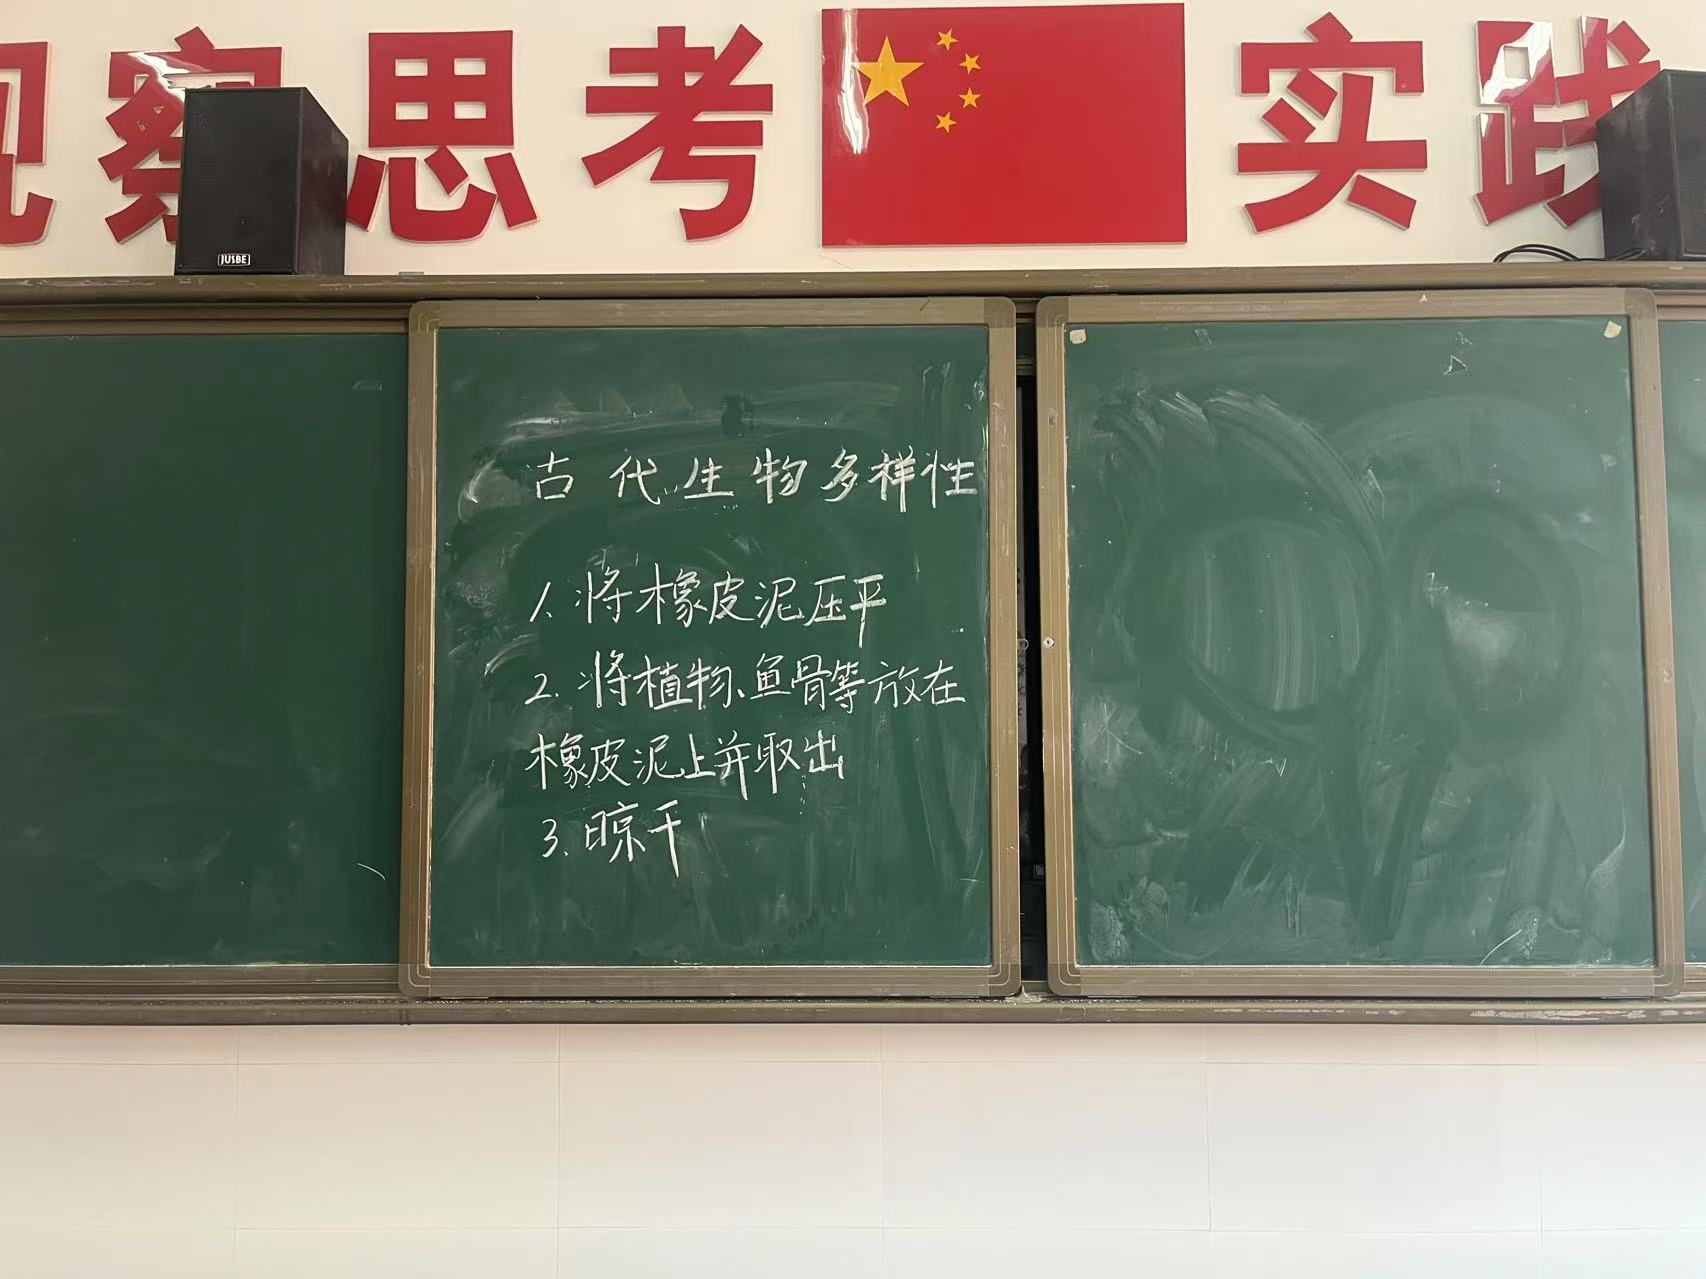 观察思考 实践
JUSBE
古代生物多样性
1.将橡皮泥压平
2.将植物、鱼骨等放在
橡皮泥上并取出
3.晾干